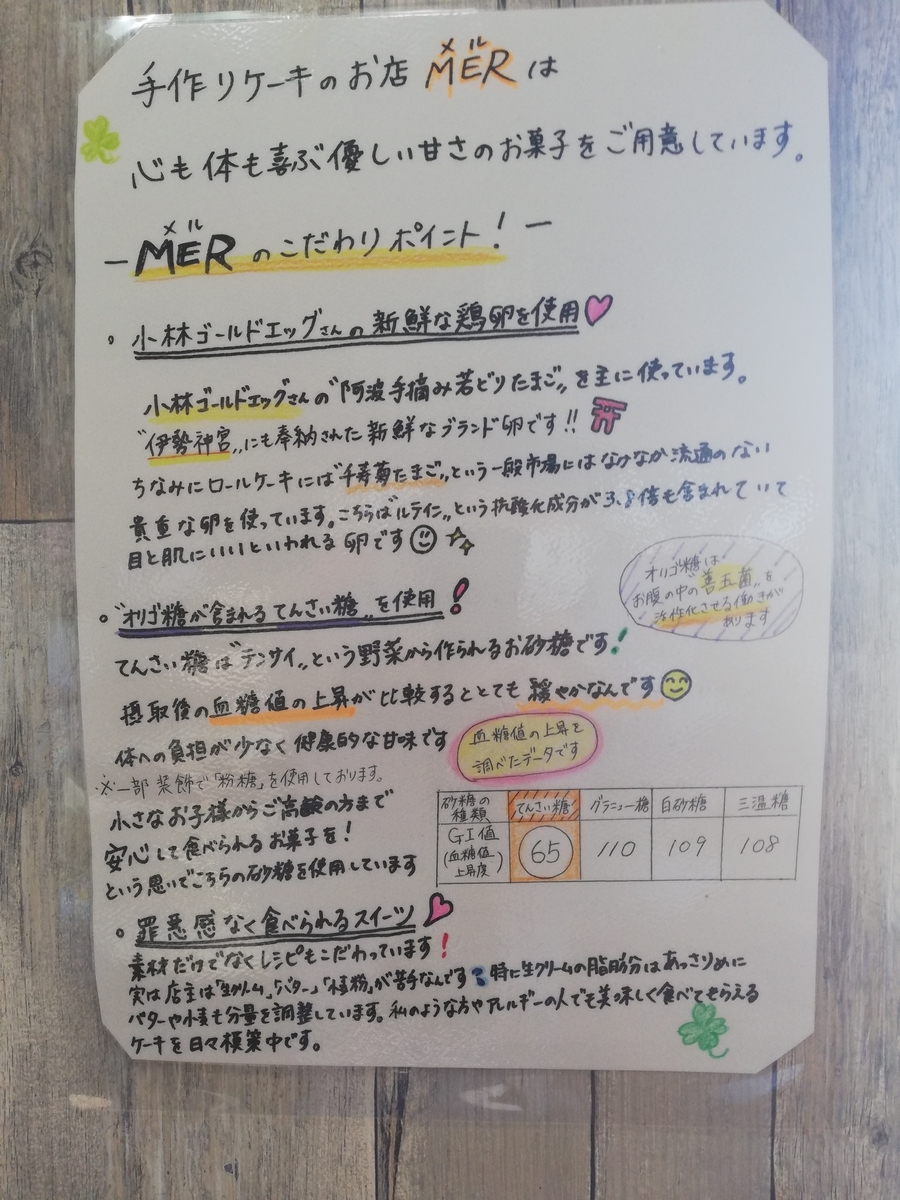 手作りケーキのお店 MERは
メル
心も体も喜ぶ優しい甘さのお菓子をご用意しています。
メル
－MERのこだわりポイント！－
。小林ゴールドエッグさんの新鮮な鶏卵を使用
小林ゴールドエッグさんの〝阿波手摘み若どりたまご〟を主に使っています。
〝伊勢神宮〟にも奉納された新鮮なブランド卵です!!
ちなみにロールケーキには〝千寿菊たまご〟という一般市場にはなかなか流通のない
貴重な卵を使っています。こちらは〝ルテイン〟という抗酸化成分が3.8倍も含まれていて
目と肌にいいといわれる卵です
オリゴ糖は
お腹の中の〝善玉菌〟を
活性化させる働きが
あります
。〝オリゴ糖が含まれるてんさい糖〟を使用！
てんさい糖は〝テンサイ〟という野菜から作られるお砂糖です！
摂取後の血糖値の上昇が比較するととても緩やかなんです
体への負担が少なく健康的な甘味です
※一部装飾で「粉糖」を使用しております。
小さなお子様からご高齢の方まで
安心して食べられるお菓子を！
という思いでこちらの砂糖を使用しています
血糖値の上昇を
調べたデータです
砂糖の種類 てんさい糖 グラニュー糖 白砂糖 三温糖
GI値(血糖値上昇度) 65 110 109 108
。罪悪感なく食べられるスイーツ
素材だけでなくレシピもこだわっています！
実は店主は「生クリーム」「バター」「小麦粉」が苦手なんです 特に生クリームの脂肪分はあっさりめに
バターや小麦も分量を調整しています。私のような方やアレルギーの人でも美味しく食べてもらえる
ケーキを日々模索中です。